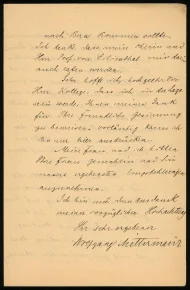 nach Bern kommen sollte.
Ich denke dass mein Herr und
Herr Prof. von
auch
Sehr hoffe ich, hochgeehrter
Herr Kollege, dass ich in der Lage
sein werde, Ihnen meinen Dank
für Ihre freundliche Gesinnung
zu beweisen, vorläufig kann ich
ihn nur hier ausdrücken.
Meine Frau und ich bitten
Ihre Frau Gemahlin und Sie
unsere ergebensten Empfehlungen
anzunehmen.
Ich bin mit dem Ausdruck
meiner vorzüglichen Hochachtung
Ihr sehr ergebener
Wolfgang Mittermaier